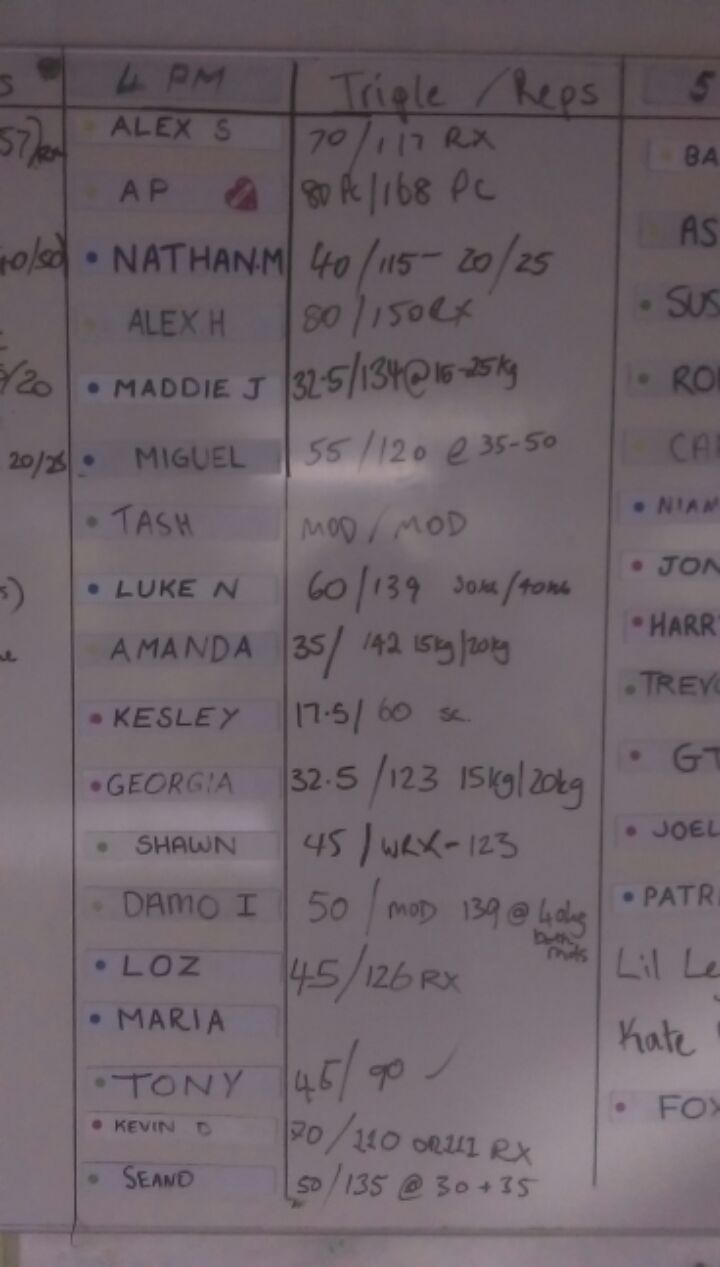 4 PM Triple / Reps 5
ALEX S 70/117 RX
57) BA
AP 80 PC/168 PC
AS
40/50 NATHAN.M 40/115 - 20/25
SUS
ALEX H 80/150 RX
/20 MADDIE J 32.5/134@15-25kg
RO
20/25 MIGUEL 55/120 @ 35-50
CA
TASH MOD/MOD
NIAM
LUKE N 60/139 30kg/40kg
JON
AMANDA 35/ 142 15kg/20kg
HARR
KESLEY 17.5/ 60 sc.
TREVO
GEORGIA 32.5/123 15kg/20kg
GT
SHAWN 45/WRX-123
JOEL
DAMO I 50/MOD 139 @ 40kg
both
PATR
LOZ 45/126 RX
Lil Le
MARIA
Kate
TONY 45/90
FOX
KEVIN D 70/110 OR111 RX
SEANO 50/135 @ 30+35